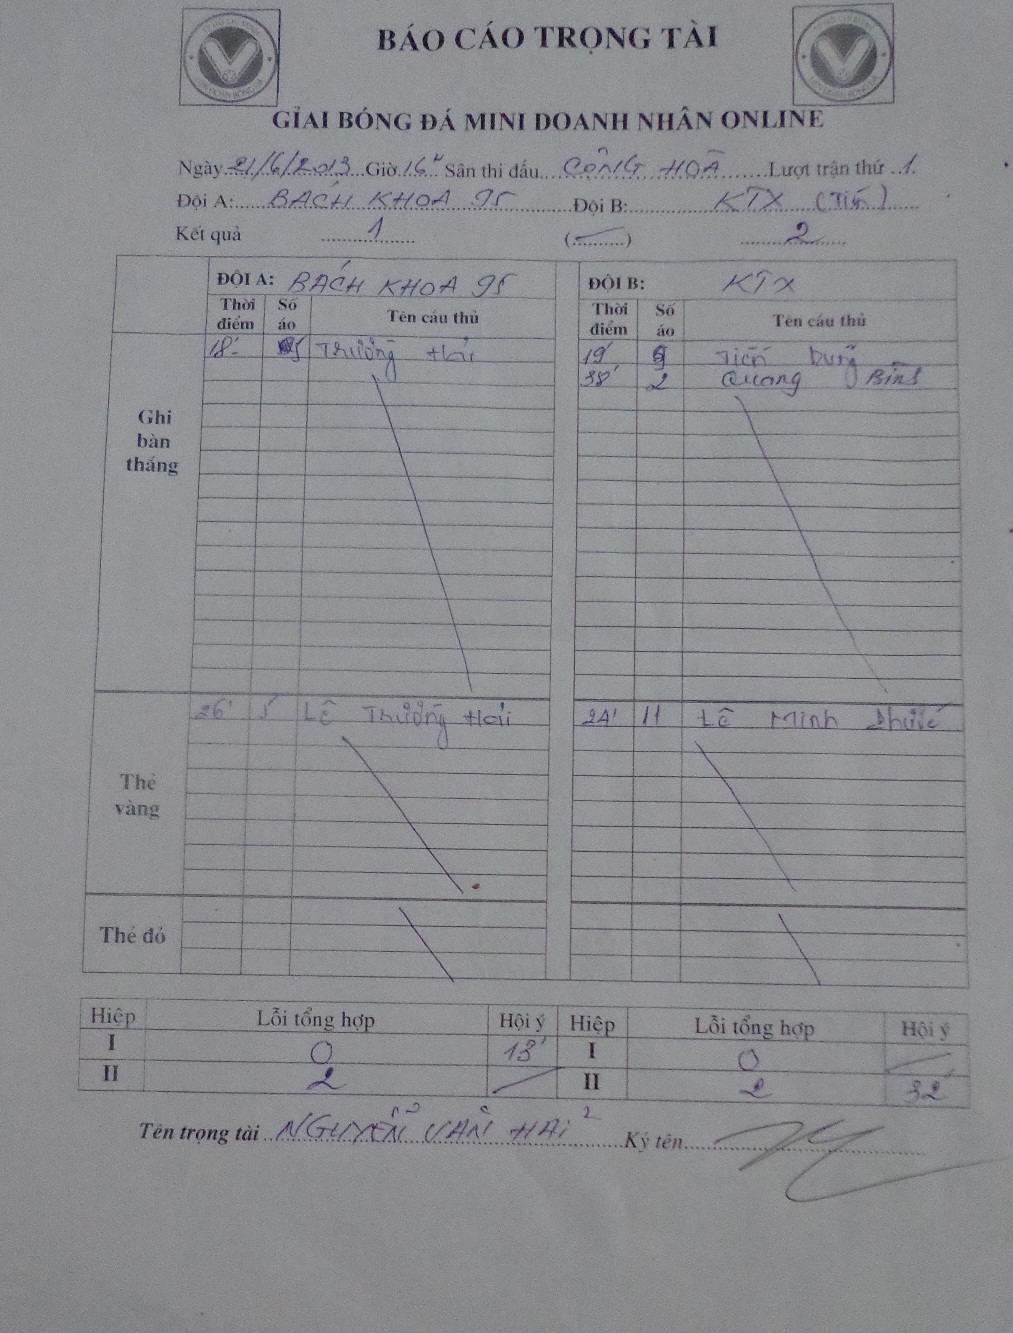 BÁO CÁO TRỌNG TÀI
GIẢI BÓNG ĐÁ MINI DOANH NHÂN ONLINE
Ngày 21/6/2013 Giờ 16h Sân thi đấu CỘNG HOÀ Lượt trận thứ 1.
Đội A: BÁCH KHOA 95 Đội B: KTX (Tiến)
Kết quả 1 ( ) 2
ĐỘI A: BÁCH KHOA 95 ĐỘI B: KTX
Thời điểm Số áo Tên cầu thủ Thời điểm Số áo Tên cầu thủ
Ghi bàn thắng
18' 5 Trường Hải 19' 9 Tiến Dũng
38' 2 Quang Bình
Thẻ vàng
26' 5 Lê Trường Hải 24' 11 Lê Minh
Thẻ đỏ
Hiệp Lỗi tổng hợp Hội ý Hiệp Lỗi tổng hợp Hội ý
I 0 13' I 0
II 2 II 2 32'
Tên trọng tài NGUYỄN VĂN HẢI 2 Ký tên